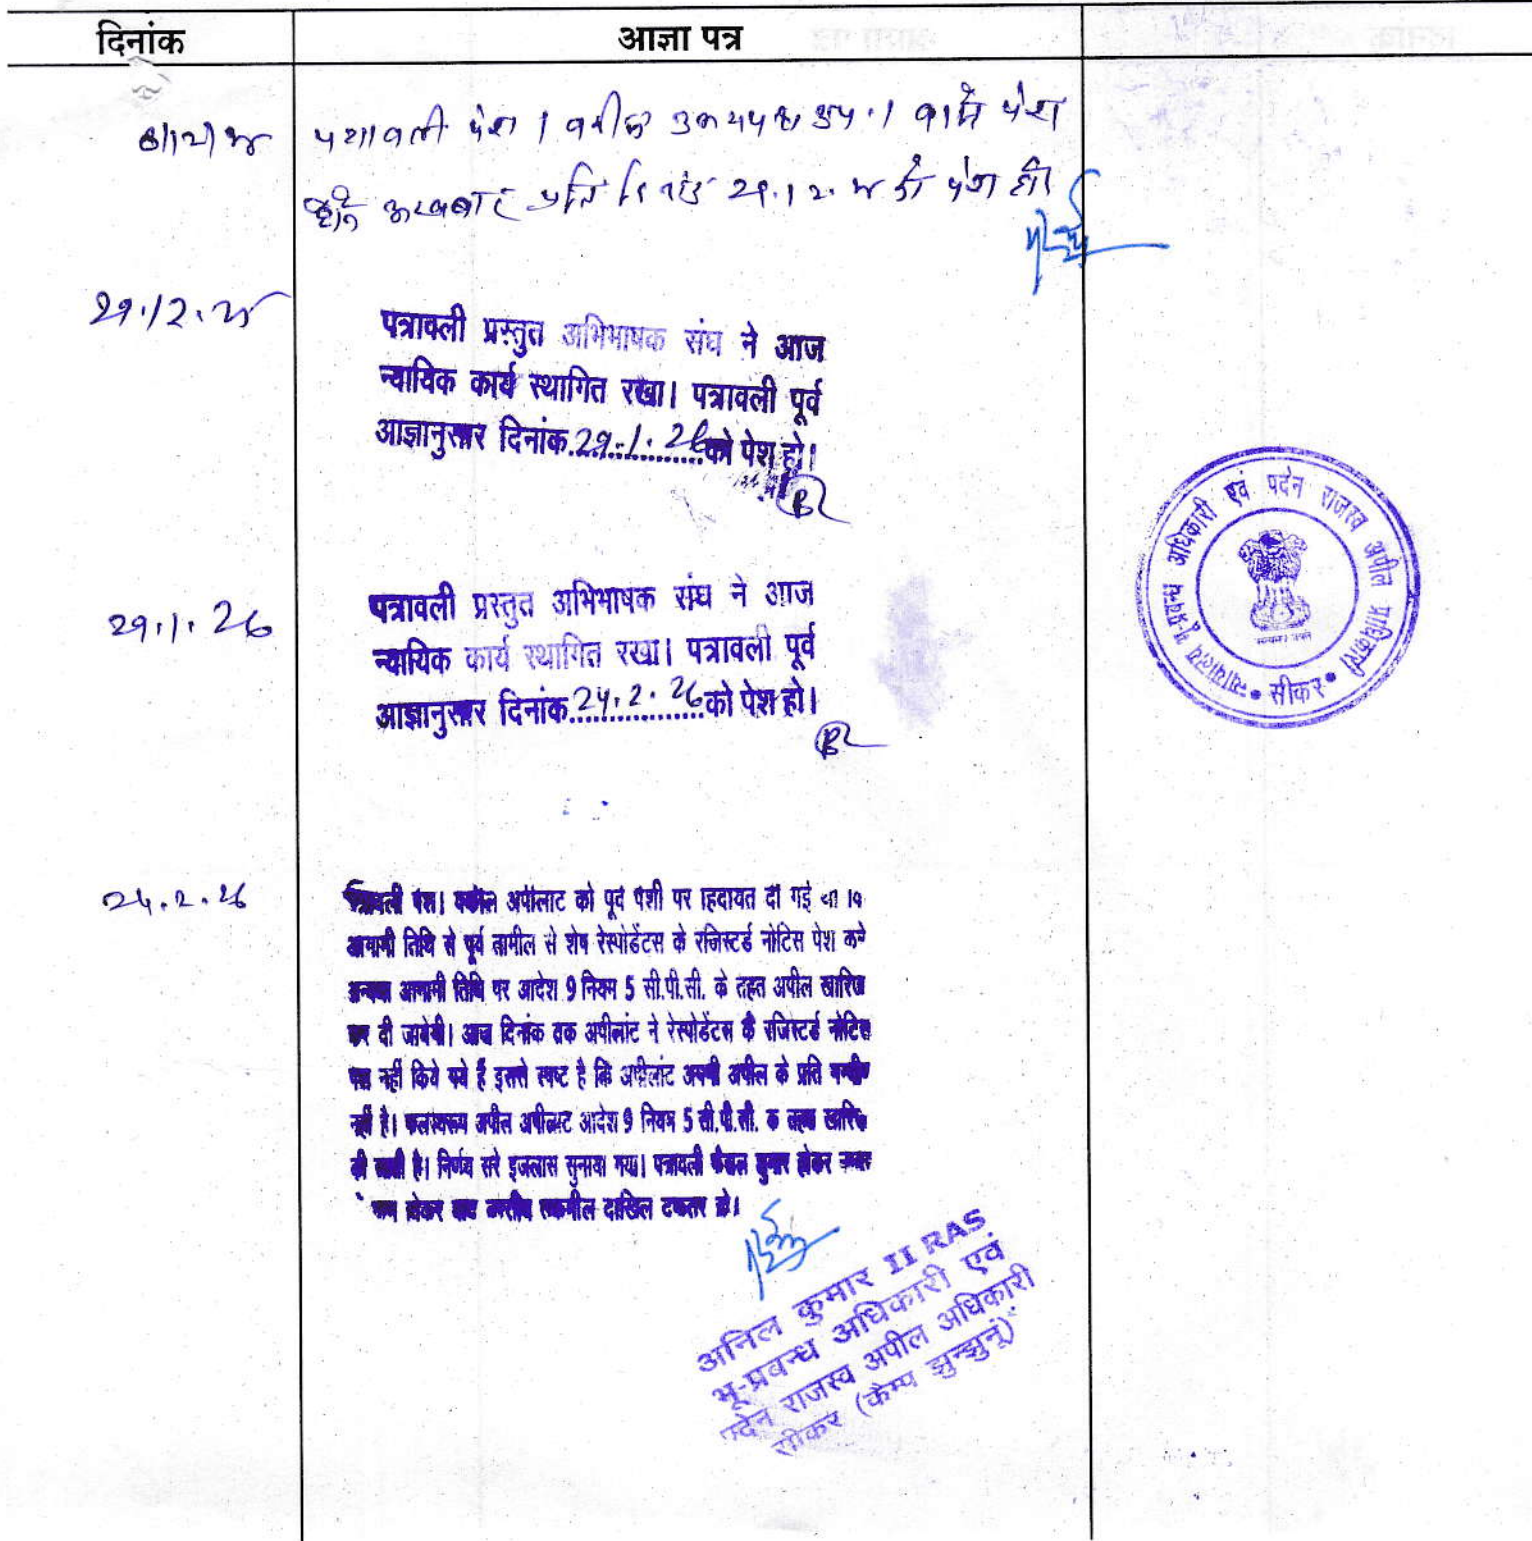 दिनांक
आज्ञा पत्र
पत्रावली पेश । वकील उभयपक्ष उप. । वास्ते पेश
होने अखबार प्रति दिनांक 29.12.25 को पेश हो।
29.12.25
पत्रावली प्रस्तुत अभिभाषक संघ ने आज
न्यायिक कार्य स्थागित रखा। पत्रावली पूर्व
आज्ञानुसार दिनांक 29.1.26 को पेश हो।
29.1.26
पत्रावली प्रस्तुत अभिभाषक संघ ने आज
न्यायिक कार्य स्थागित रखा। पत्रावली पूर्व
आज्ञानुसार दिनांक 24.2.26 को पेश हो।
न्यायालय भू-प्रबन्ध अधिकारी एवं पदेन राजस्व अपील प्राधिकारी
• सीकर •
24.2.26
पत्रावली पेश। वकील अपीलांट को पूर्व पेशी पर हिदायत दी गई थी कि
आगामी तिथि से पूर्व तामील से शेष रेस्पोडेंटस के रजिस्टर्ड नोटिस पेश करे
अन्यथा आगामी तिथि पर आदेश 9 नियम 5 सी.पी.सी. के तहत अपील खारिज
कर दी जावेगी। आज दिनांक तक अपीलांट ने रेस्पोडेंटस के रजिस्टर्ड नोटिस
पेश नहीं किये गये हैं इससे स्पष्ट है कि अपीलांट अपनी अपील के प्रति गम्भीर
नहीं है। फलस्वरूप अपील अपीलांट आदेश 9 नियम 5 सी.पी.सी. के तहत खारिज
की जाती है। निर्णय सरे इजलास सुनाया गया। पत्रावली फैसल शुमार होकर नम्बर
होकर बाद तकमील दाखिल दफ्तर हो।
अनिल कुमार II RAS
भू-प्रबन्ध अधिकारी एवं
पदेन राजस्व अपील अधिकारी
सीकर (केम्प झुन्झुनूं)